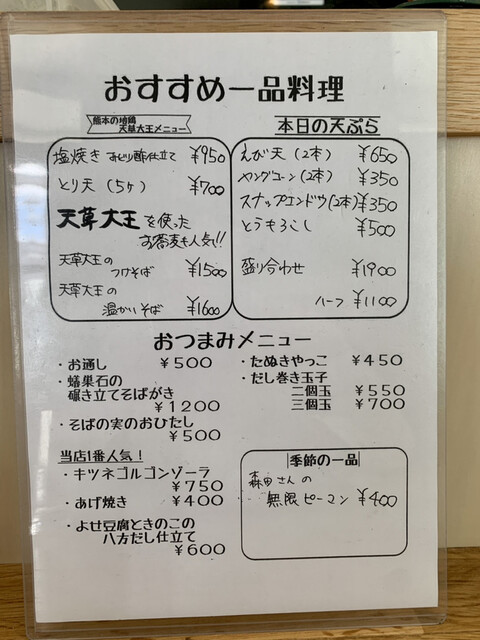 おすすめ一品料理
熊本の地鶏
天草大王メニュー
塩焼き おどり酢仕立て ¥950
とり天(5ヶ) ¥700
天草大王を使った
お蕎麦も人気!!
天草大王の
つけそば ¥1500
天草大王の
温かいそば ¥1600
本日の天ぷら
えび天(2本) ¥650
ヤングコーン(2本) ¥350
スナップエンドウ(2本) ¥350
とうもろこし ¥500
盛り合わせ ¥1900
ハーフ ¥1100
おつまみメニュー
・お通し ¥500
・蟠巣石の
碾き立てそばがき
¥1200
・そばの実のおひたし
¥500
当店1番人気!
・キツネゴルゴンゾーラ
¥750
・あげ焼き ¥400
・よせ豆腐ときのこの
八方だし仕立て
¥600
・たぬきやっこ ¥450
・だし巻き玉子
二個玉 ¥550
三個玉 ¥700
季節の一品
森田さんの
無限ピーマン ¥400